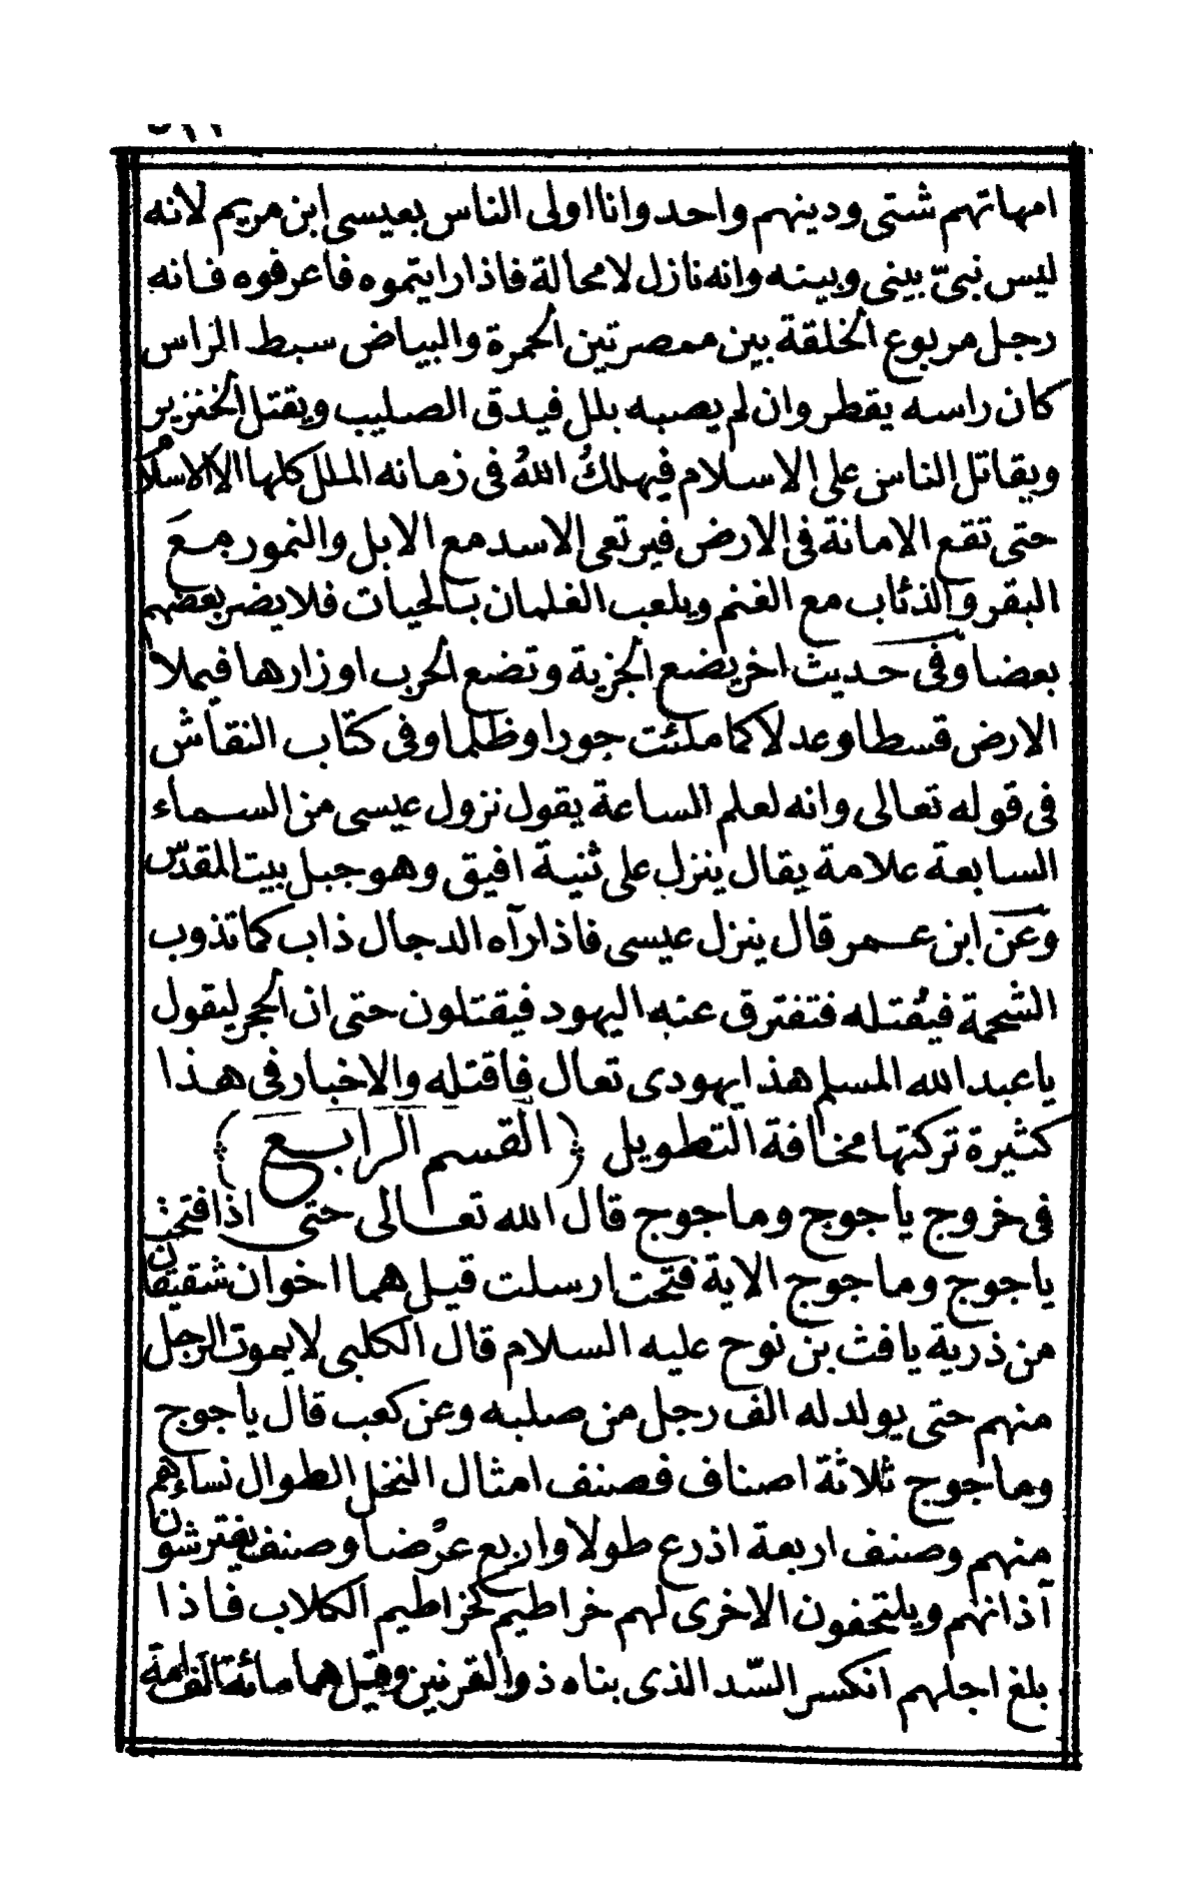 امهاتهم شتى ودينهم واحد وانا اولى الناس بعيسى ابن مريم لانه
ليس نبىّ بينى وبينه وانه نازل لا محالة فاذا رايتموه فاعرفوه فانه
رجل مربوع الخلقة بين ممصرتين الحمرة والبياض سبط الراس
كان راسه يقطر وان لم يصبه بلل فيدق الصليب ويقتل الخنزير
ويقاتل الناس على الاسلام فيهلكُ اللهُ فى زمانه الملل كلها الا الاسلام
حتى تقع الامانة فى الارض فيرتعى الاسد مع الابل والنمور مع
البقر والذئاب مع الغنم ويلعب الغلمان بالحيات فلا يضر بعضهم
بعضا وفى حديث اخر يضع الجزية وتضع الحرب اوزارها فيملا
الارض قسطا وعدلا كما ملئت جورا وظلما وفى كتاب النقاش
فى قوله تعالى وانه لعلم الساعة يقول نزول عيسى من السماء
السابعة علامة يقال ينزل على ثنية افيق وهو جبل بيت المقدّس
وعن ابن عمر قال ينزل عيسى فاذا رآه الدجال ذاب كما تذوب
الشحمة فيُقتله فتفترق عنه اليهود فيقتلون حتى ان الحجر ليقول
يا عبد الله المسلم هذا يهودى تعال فاقتله والاخبار فى هذا
كثيرة تركتها مخافة التطويل ﴿ القسم الرابع ﴾
فى خروج ياجوج وماجوج قال الله تعالى حتى اذا فتحت
ياجوج وماجوج الاية فتحت ارسلت قيل هما اخوان شقيقان
من ذرية يافث بن نوح عليه السلام قال الكلبى لا يموت الرجل
منهم حتى يولد له الف رجل من صلبه وعن كعب قال ياجوج
وماجوج ثلاثة اصناف فصنف امثال النخل الطوال نساءهم
منهم وصنف اربعة اذرع طولا واربع عرْضا وصنف يفترشون
آذانهم ويلتحفون الاخرى لهم خراطيم كخراطيم الكلاب فاذا
بلغ اجلهم انكسر السّد الذى بناه ذو القرنين وقيل هما مائة الف امة